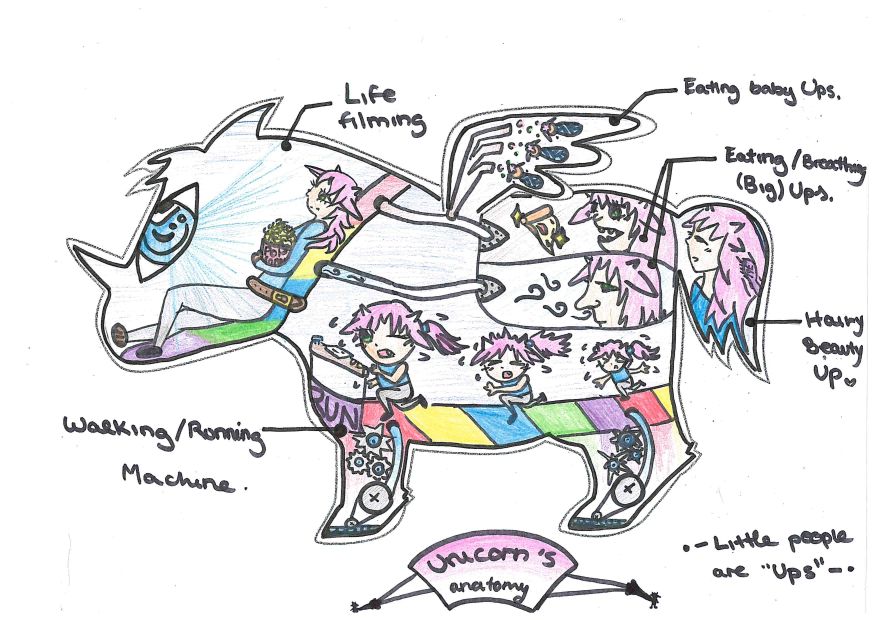 Life
filming
Eating baby Ups.
Eating/Breathing
(Big) Ups.
POP
CORN
Hairy
Beauty
Up
RUN
Walking/Running
Machine.
Unicorn's
anatomy
•- Little people
are "Ups" -•